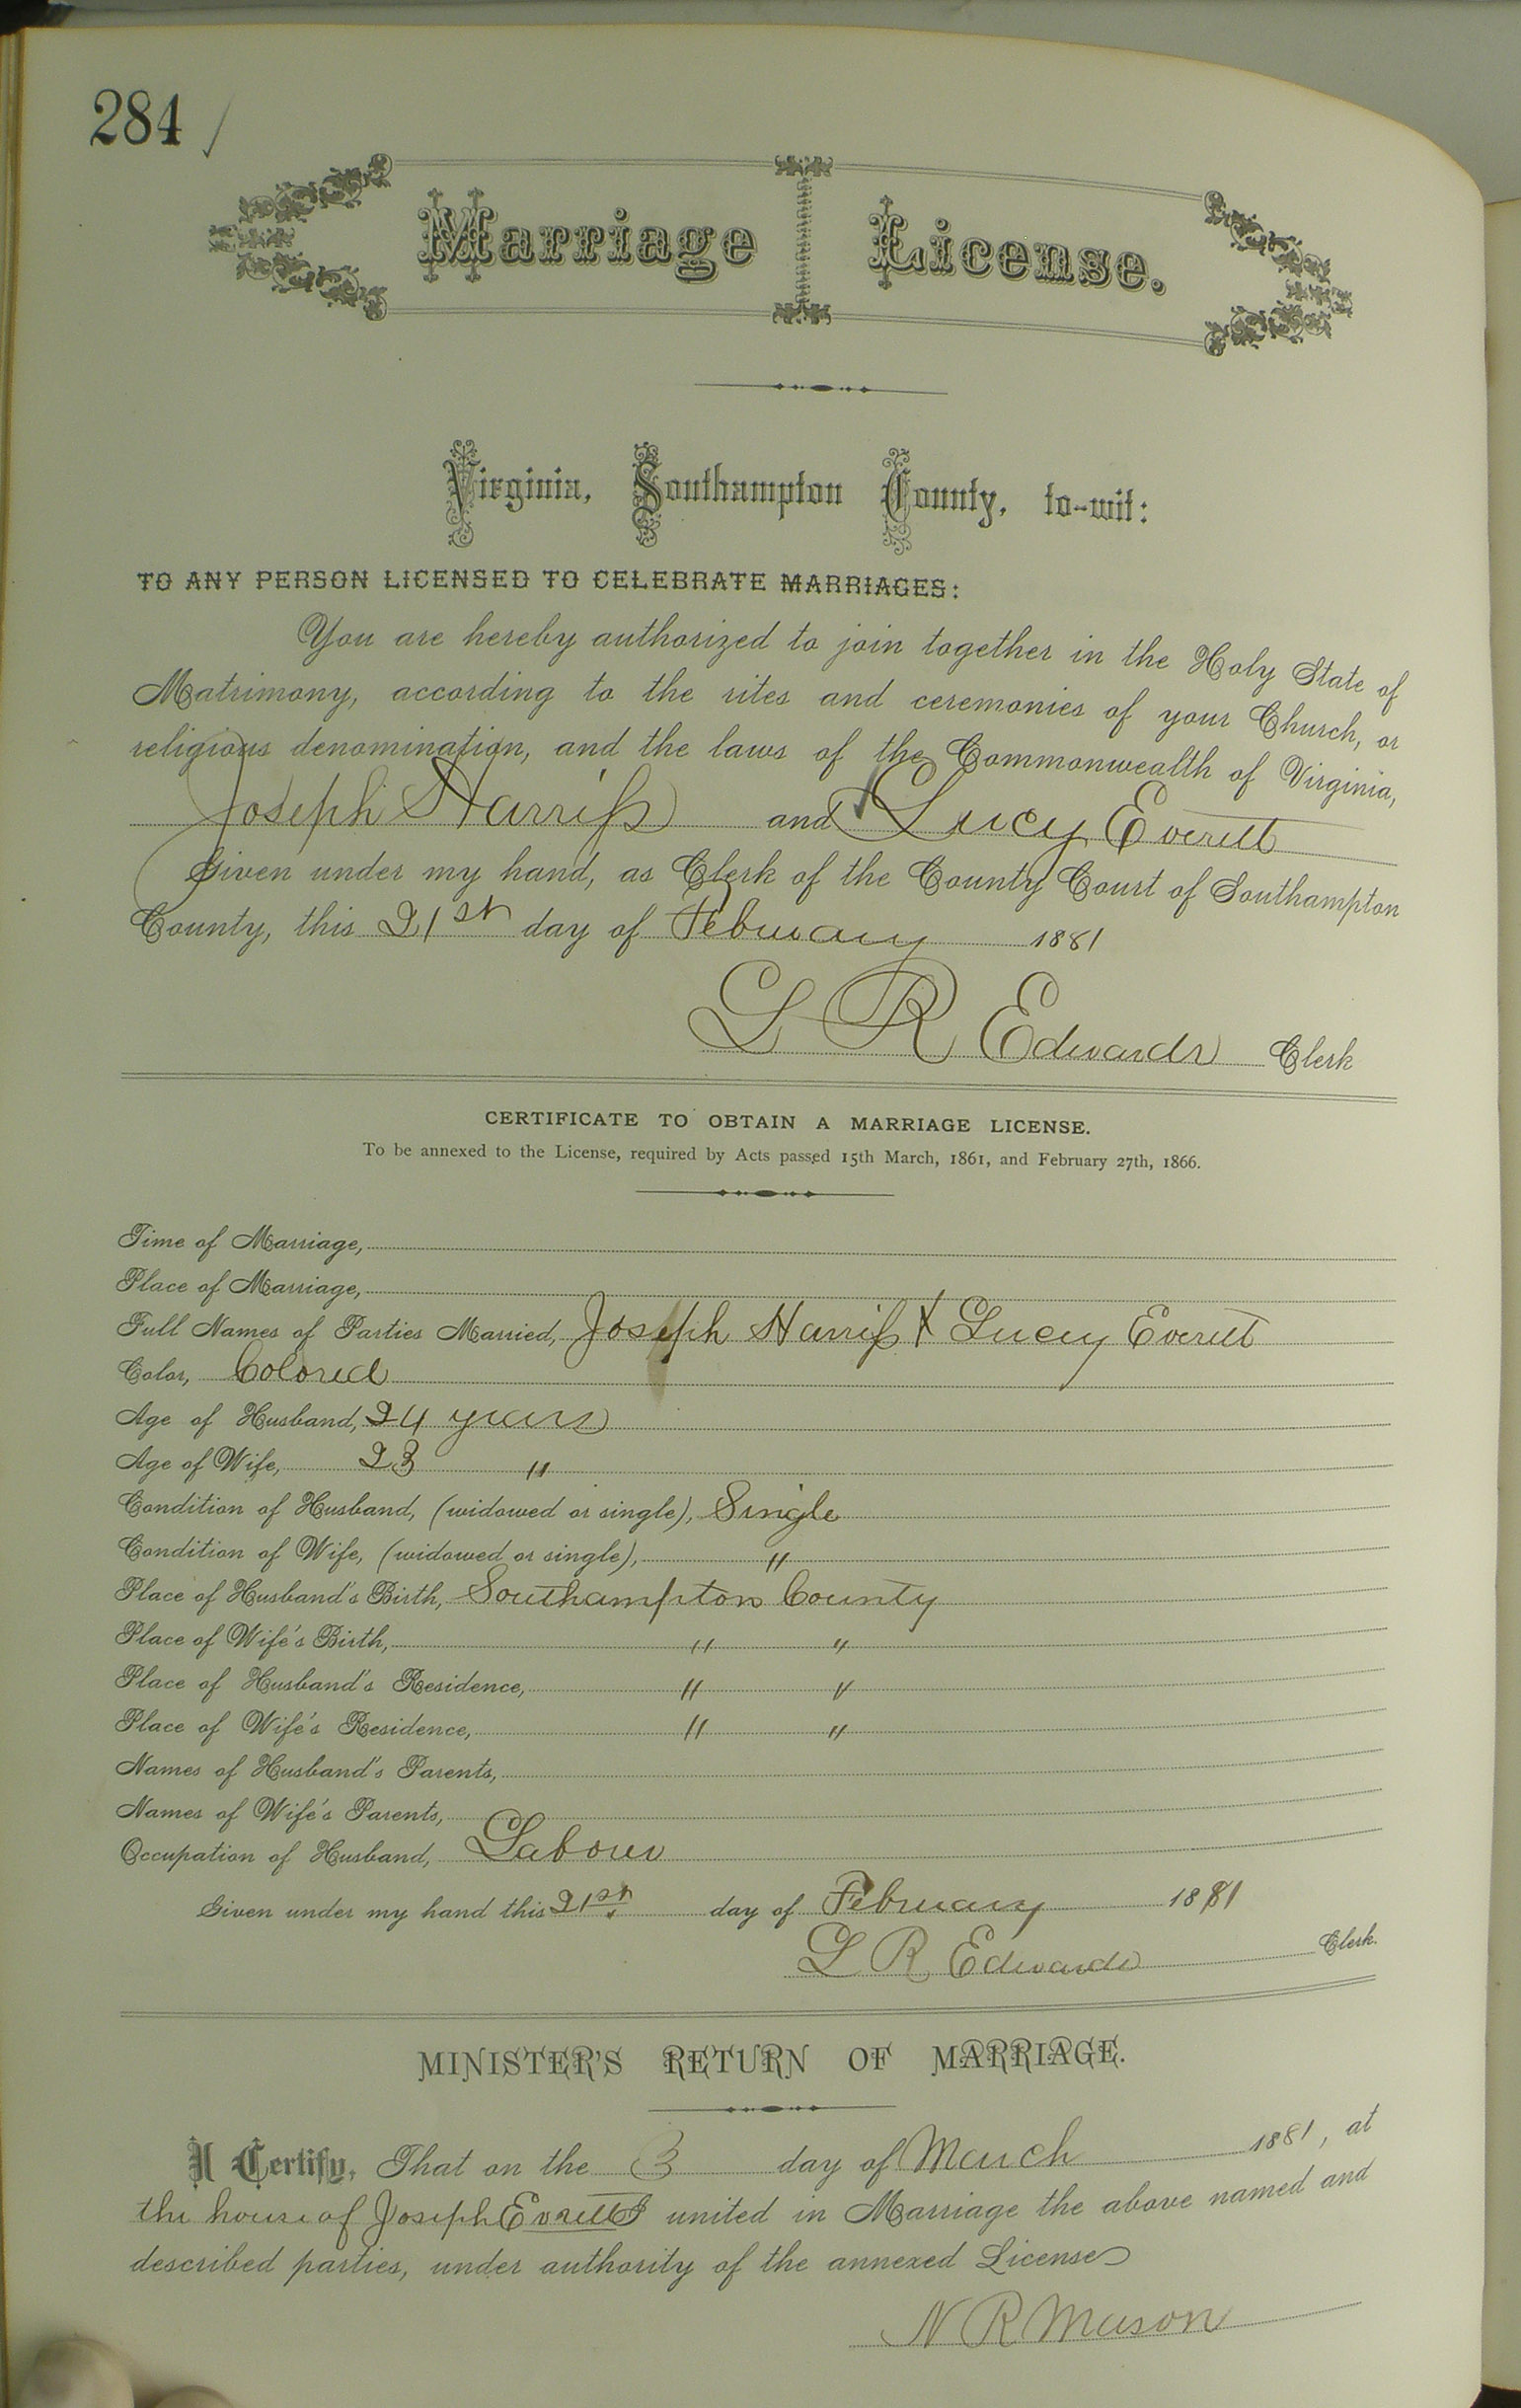 284
Marriage License.
Virginia, Southampton County, to-wit:
TO ANY PERSON LICENSED TO CELEBRATE MARRIAGES:
You are hereby authorized to join together in the Holy State of
Matrimony, according to the rites and ceremonies of your Church, or
religious denomination, and the laws of the Commonwealth of Virginia,
Joseph Harriss and Lucy Everett
Given under my hand, as Clerk of the County Court of Southampton
County, this 21st day of February 1881
L R Edwards Clerk
CERTIFICATE TO OBTAIN A MARRIAGE LICENSE.
To be annexed to the License, required by Acts passed 15th March, 1861, and February 27th, 1866.
Time of Marriage,
Place of Marriage,
Full Names of Parties Married, Joseph Harriss & Lucy Everett
Color, Colored
Age of Husband, 24 years
Age of Wife, 23 "
Condition of Husband, (widowed or single), Single
Condition of Wife, (widowed or single), "
Place of Husband's Birth, Southampton County
Place of Wife's Birth, " "
Place of Husband's Residence, " "
Place of Wife's Residence, " "
Names of Husband's Parents,
Names of Wife's Parents,
Occupation of Husband, Labour
Given under my hand this 21st day of February 1881
L R Edwards Clerk.
MINISTER'S RETURN OF MARRIAGE.
I Certify, That on the 3 day of March 1881, at
the house of Joseph Everett I united in Marriage the above named and
described parties, under authority of the annexed License
N R Mason